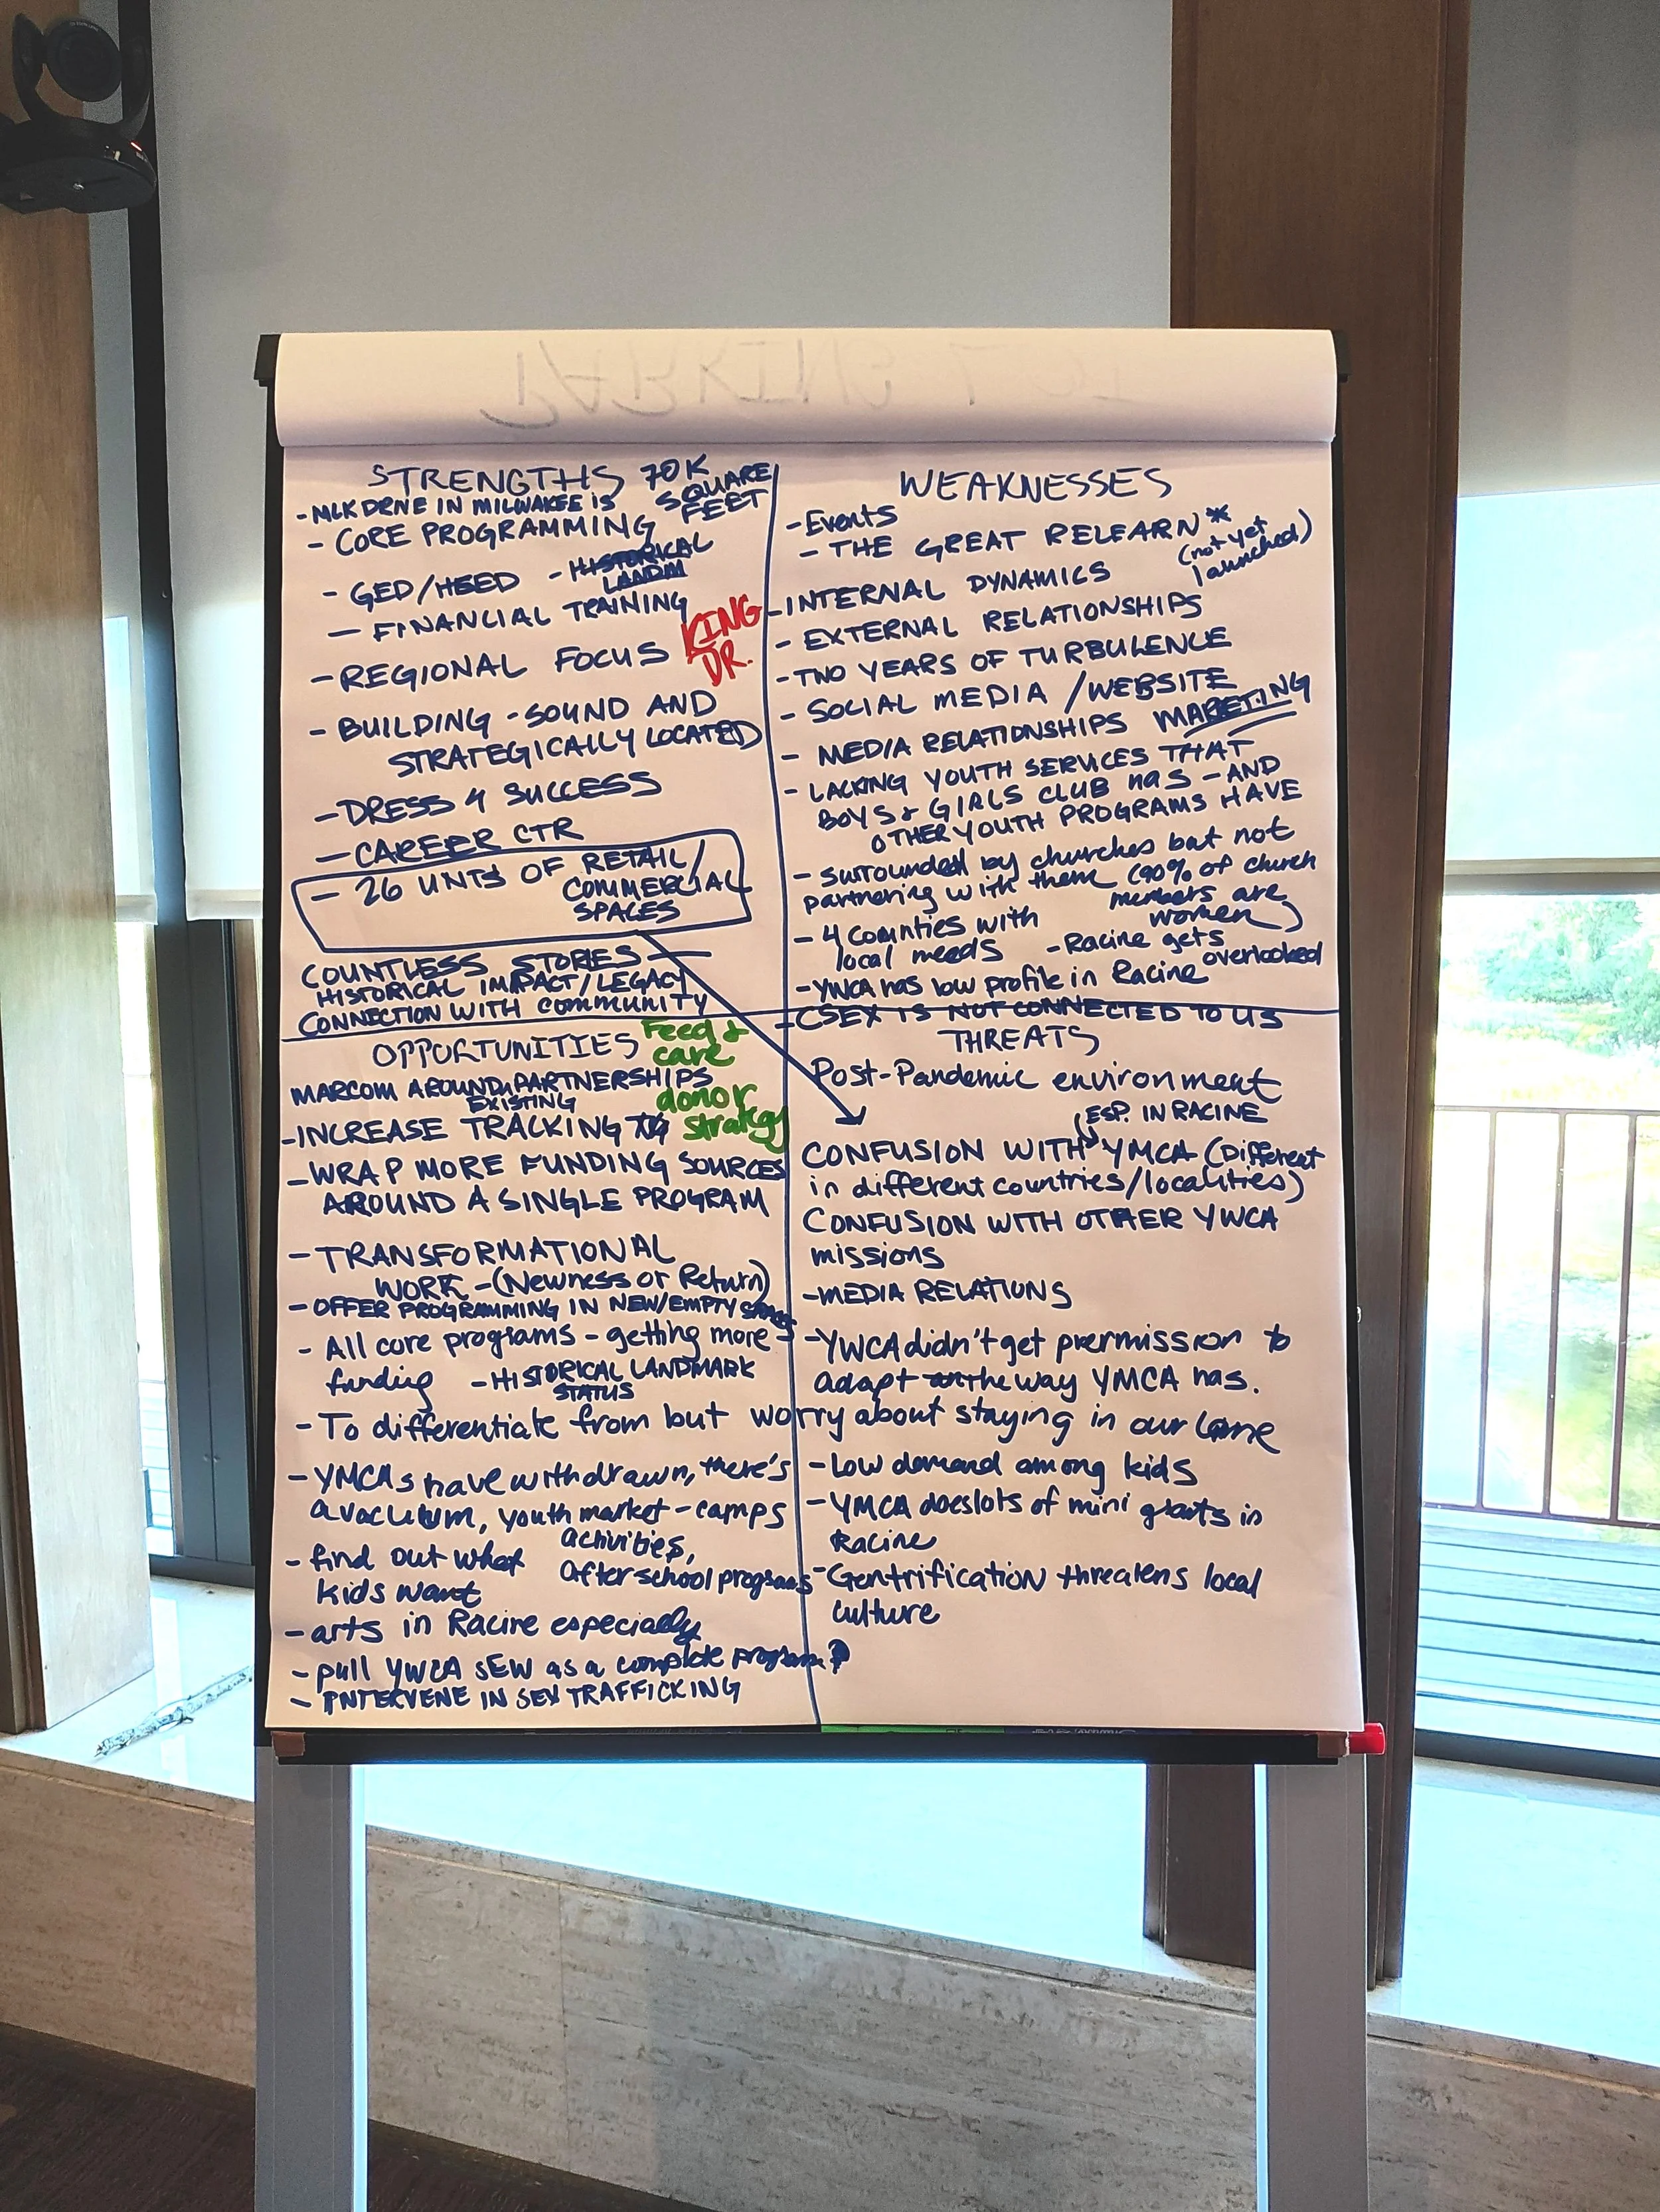 PARKING LOT
STRENGTHS 70K
SQUARE
FEET
- MLK DRIVE IN MILWAKEE IS
- CORE PROGRAMMING
- GED/HEED - HISTORICAL
LANDM
- FINANCIAL TRAINING
KING
DR.
- REGIONAL FOCUS
- BUILDING - SOUND AND
STRATEGICALLY LOCATED
- DRESS 4 SUCCESS
- CAREER CTR
- 26 UNTS OF RETAIL/
COMMERCIAL
SPACES
COUNTLESS STORIES
HISTORICAL IMPACT/LEGACY
CONNECTION WITH community
WEAKNESSES
- Events
- THE GREAT RELEARN*
(not yet
launched)
- INTERNAL DYNAMICS
- EXTERNAL RELATIONSHIPS
- TWO YEARS OF TURBULENCE
- SOCIAL MEDIA / WEBSITE
- MEDIA RELATIONSHIPS MARETING
- LACKING YOUTH SERVICES THAT
BOYS & GIRLS CLUB has - AND
OTHER YOUTH PROGRAMS HAVE
- surrounded by churches but not
partnering with them (90% of church
members are
women)
- 4 counties with
local needs
- Racine gets
overlooked
- YWCA has low profile in Racine
- CSEX IS NOT CONNECTED TO US
OPPORTUNITIES
Feed &
care
donor
strategy
MARCOM AROUND PARTNERSHIPS
EXISTING
- INCREASE TRACKING
- WRAP MORE FUNDING SOURCES
AROUND A SINGLE PROGRAM
- TRANSFORMATIONAL
WORK - (Newness or Return)
- OFFER PROGRAMMING IN NEW/EMPTY
- All core programs - getting more
funding - HISTORICAL LANDMARK
STATUS
- To differentiate from but worry about staying in our lane
- YMCAs have withdrawn, there's
a vacuum, youth market - camps
activities,
after school programs
- find out what
kids want
- arts in Racine especially
- pull YWCA SEW as a complete program?
- INTERVENE IN SEX TRAFFICKING
THREATS
Post-Pandemic environment
ESP. IN RACINE
CONFUSION WITH YMCA (Different
in different countries/localities)
CONFUSION WITH OTHER YWCA
missions
- MEDIA RELATIONS
- YWCA didn't get prermission to
adapt the way YMCA has.
- Low demand among kids
- YMCA does lots of mini grants in
Racine
- Gentrification threatens local
culture